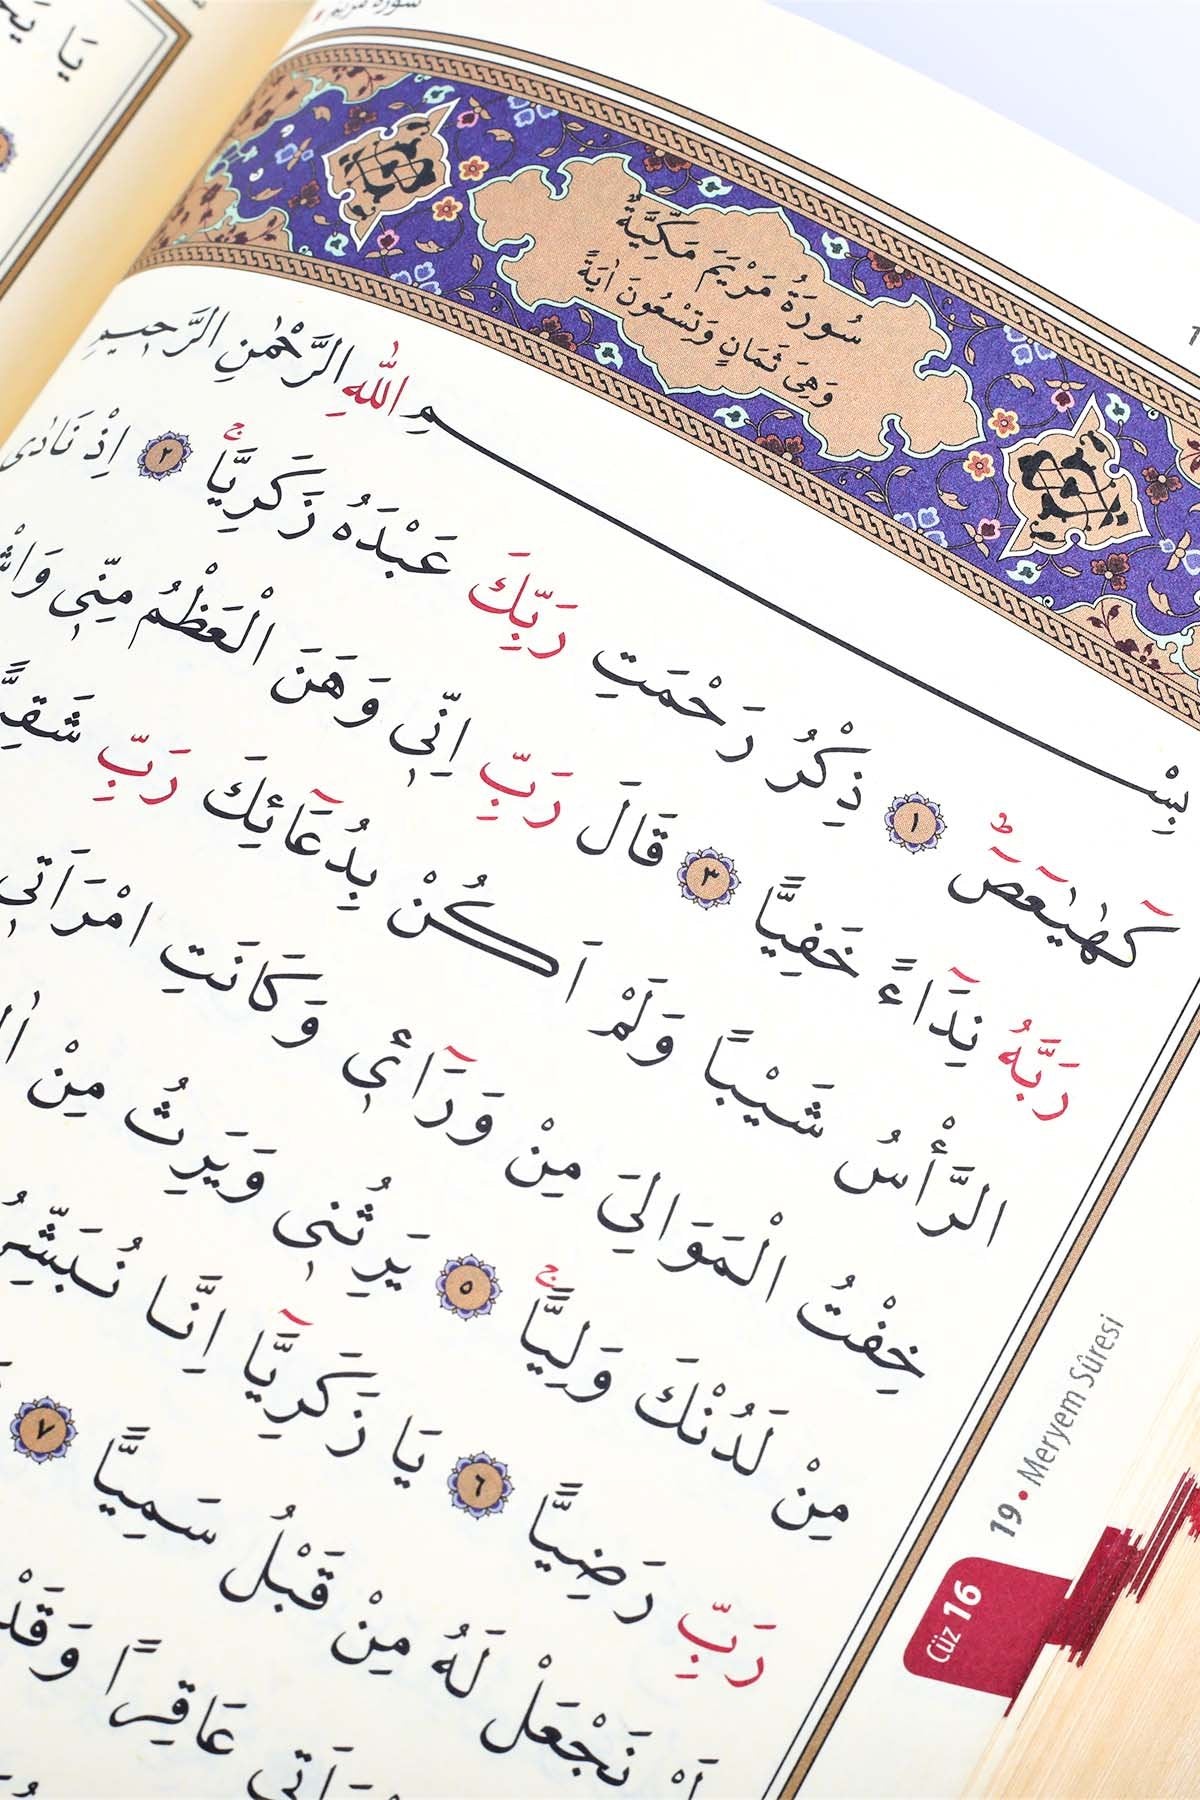 سورة مريم
سُورَةُ مَرْيَمَ مَكِّيَّةٌ
وَهِىَ ثَمَانٍ وَتِسْعُونَ اٰيَةً
بِسْمِ اللّٰهِ الرَّحْمٰنِ الرَّحِيمِ
كٓهٰيٰعٓصٓ ۜ ١ ذِكْرُ رَحْمَتِ رَبِّكَ عَبْدَهُ زَكَرِيَّاۚ ٢ اِذْ نَادٰى
رَبَّهُ نِدَٓاءً خَفِيًّا ٣ قَالَ رَبِّ اِنّ۪ى وَهَنَ الْعَظْمُ مِنّ۪ى
الرَّأْسُ شَيْبًا وَلَمْ اَكُنْ بِدُعَٓائِكَ رَبِّ شَقِيًّا
خِفْتُ الْمَوَالِىَ مِنْ وَرَٓاء۪ى وَكَانَتِ امْرَاَت۪ى
مِنْ لَدُنْكَ وَلِيًّاۚ ٥ يَرِثُن۪ى وَيَرِثُ مِنْ
رَبِّ رَضِيًّا ٦ يَا زَكَرِيَّٓا اِنَّا نُبَشِّرُ
نَجْعَلْ لَهُ مِنْ قَبْلُ سَمِيًّا ٧
عَاقِرًا وَقَدْ
19 • Meryem Sûresi
Cüz 16